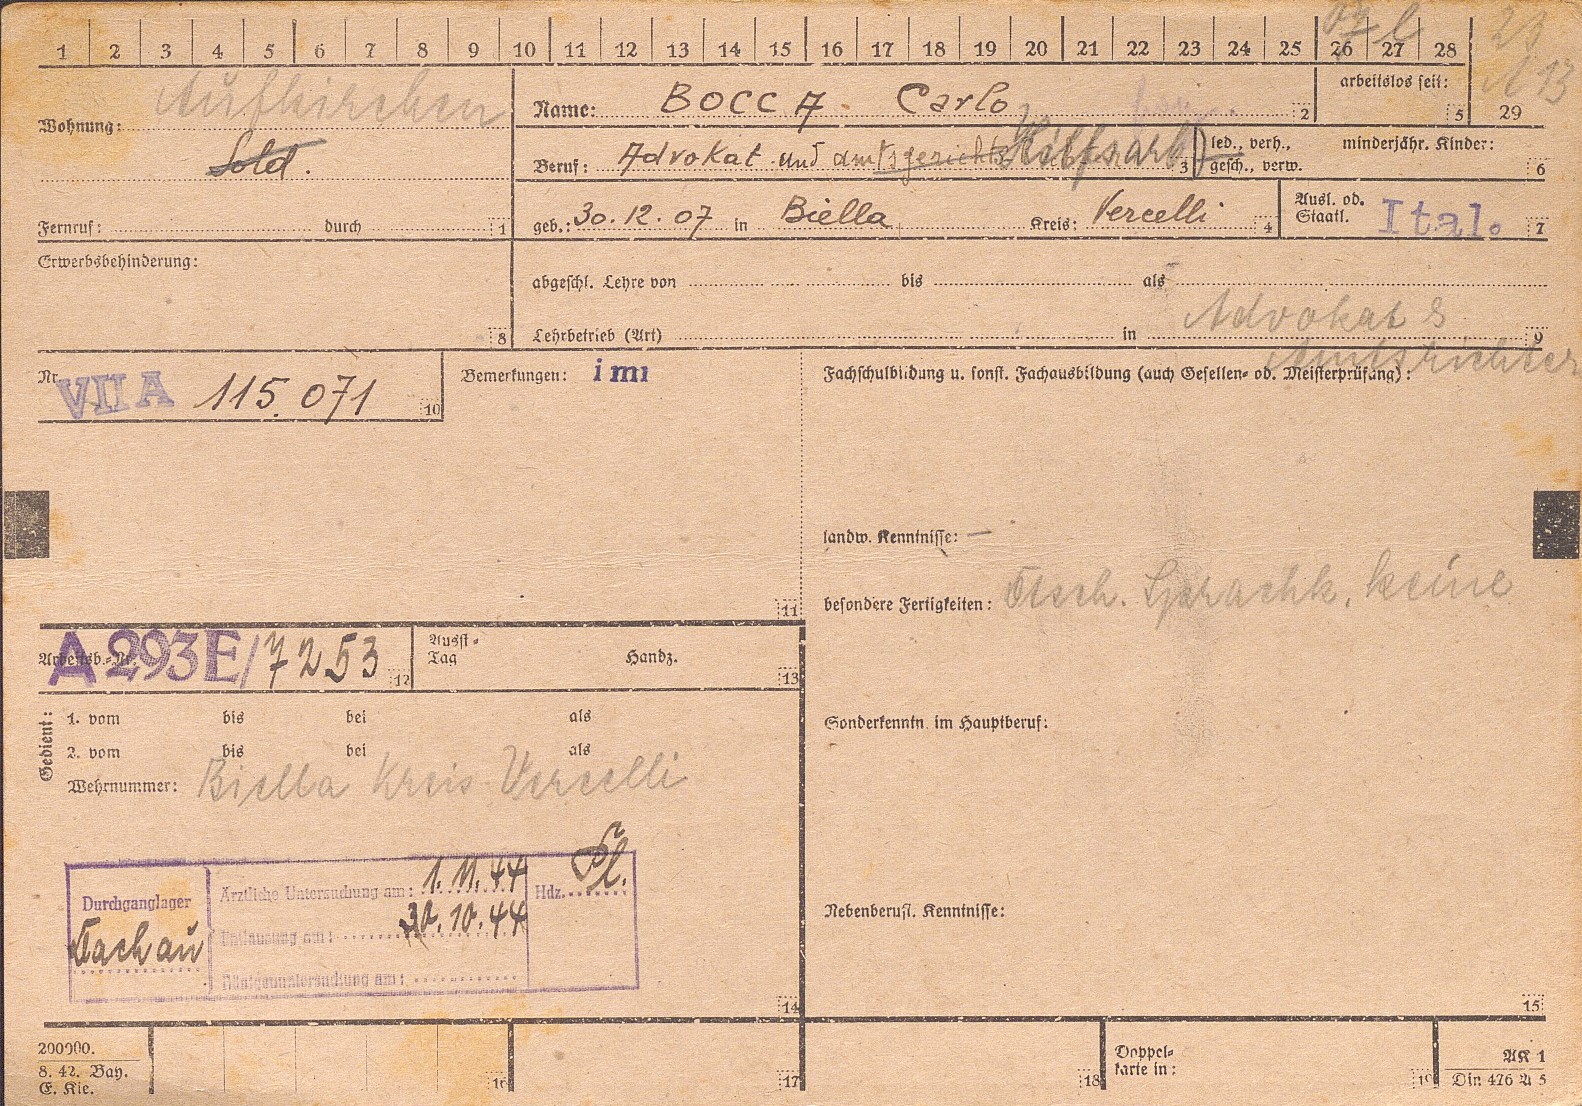 1 2 3 4 5 6 7 8 9 10 11 12 13 14 15 16 17 18 19 20 21 22 23 24 25 26 27 28
Aufkirchen
Wohnung:
Sold.
Fernruf: durch 1
Name: BOCCA Carlo 2
arbeitslos seit: 5
29
Beruf: Advokat und amtsgerichts Hilfsarb 3
led., verh., gesch., verw.
minderjähr. Kinder: 6
geb.: 30.12.07 in Biella Kreis: Vercelli 4
Ausl. od. Staatl. Ital. 7
Erwerbsbehinderung: 8
abgeschl. Lehre von bis als
Advokat &
Lehrbetrieb (Art) in 9
Amtsrichter
Nr. VII A 115.071 10
Bemerkungen: imi
11
Fachschulbildung u. sonst. Fachausbildung (auch Gesellen- od. Meisterprüfung):
landw. Kenntnisse: —
besondere Fertigkeiten: Dtsch. Sprachk. keine
Arbeitsb.-Nr. A 293E/7253 12
Ausst.-Tag Handz. 13
Gedient:
1. vom bis bei als
2. vom bis bei als
Wehrnummer: Biella Kreis Vercelli
Sonderkenntn. im Hauptberuf:
Durchganglager
Dachau
Ärztliche Untersuchung am: 1.11.44
Entlausung am: 30.10.44
Röntgenuntersuchung am:
Hdz.
14
Nebenberufl. Kenntnisse:
15
200000.
8. 42. Bay.
E. Kie.
16 17 18
Doppelkarte in: 19
AK 1
Din 476 A 5